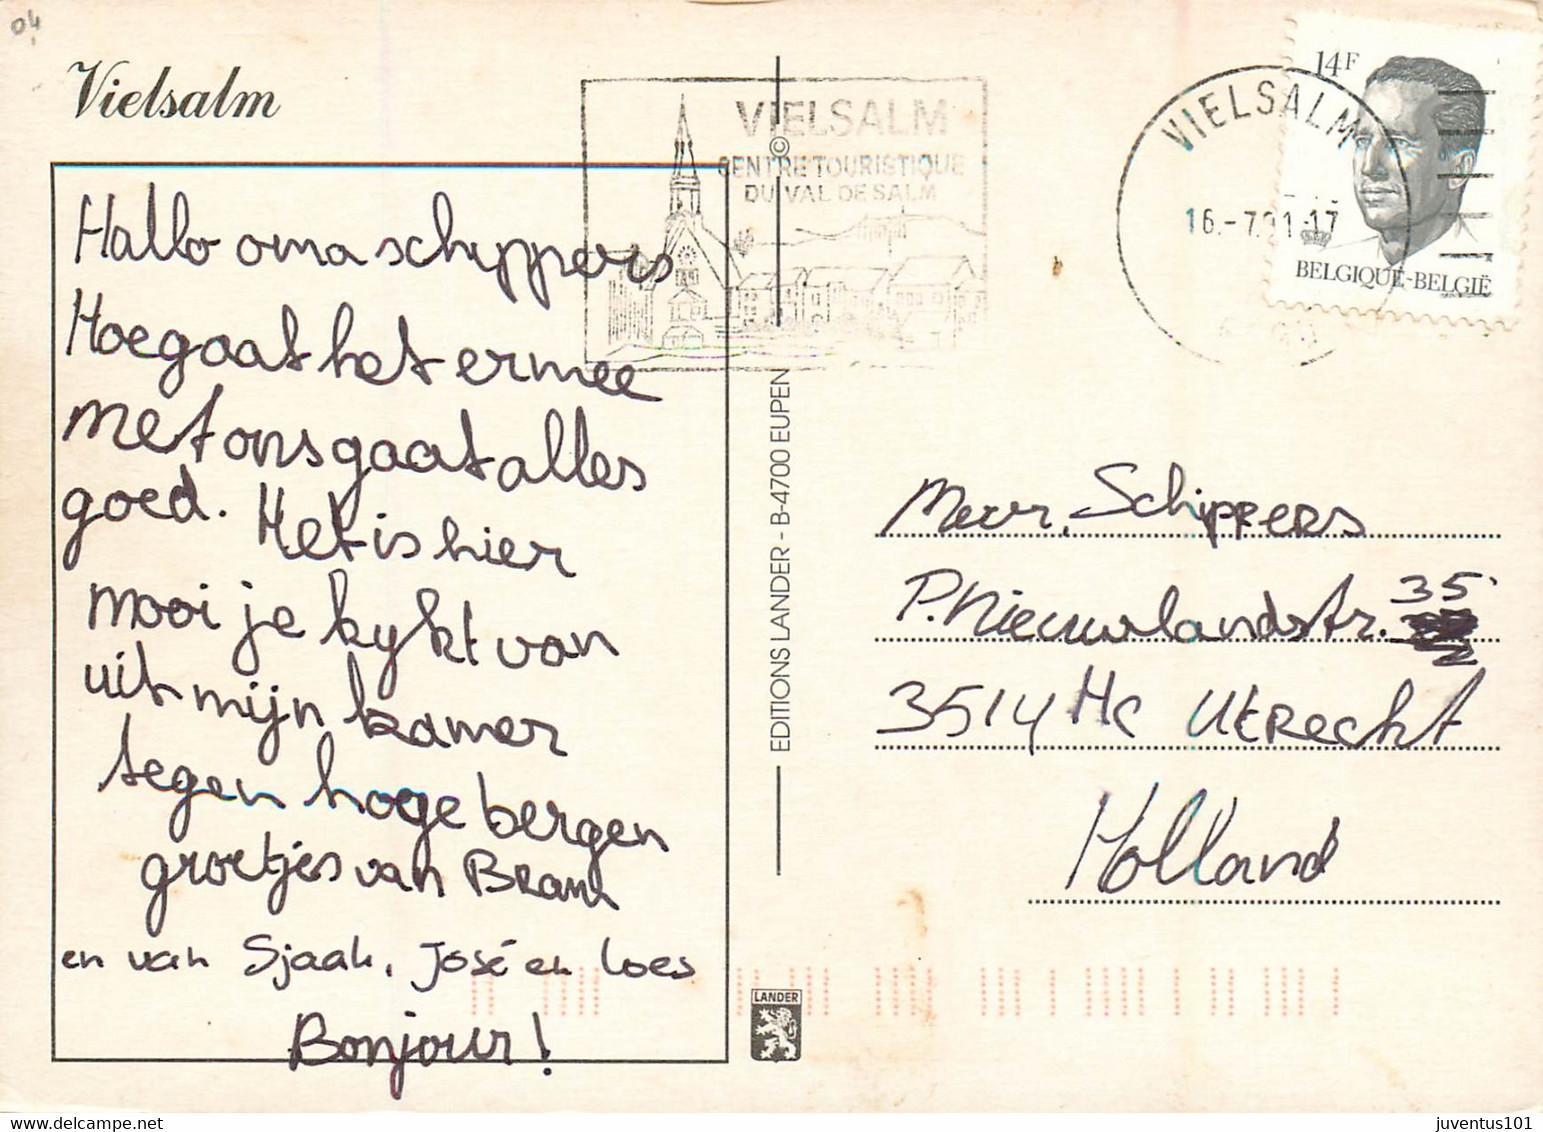 04
Vielsalm
Hallo oma schyppers
Hoe gaat het ermee
met ons gaat alles
goed. Het is hier
mooi je kykt van
uit mijn kamer
tegen hoge bergen
groetjes van Bram
en van Sjaak, José en Loes
Bonjour!
VIELSALM
CENTRE TOURISTIQUE
DU VAL DE SALM
©
EDITIONS LANDER - B-4700 EUPEN
LANDER
14F
BELGIQUE-BELGIË
VIELSALM
16.-7.91-17
Mevr. Schippers
P. Nieuwlandstr. 35
3514 HC Utrecht
Holland
juventus101